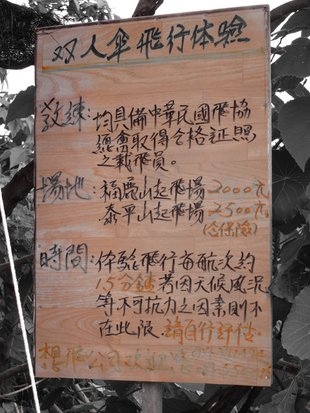 双人伞飛行体验
教練:均具備中華民國飛協
總會取得合格証照
之載飛員。
場地:福鹿山起飛場2000元
泰平山起飛場2500元
(含保險)
時間:体驗飛行每航次約
15分鐘若因天候風況
等不可抗力之因素則不
在此限.請自行評估.
想飛